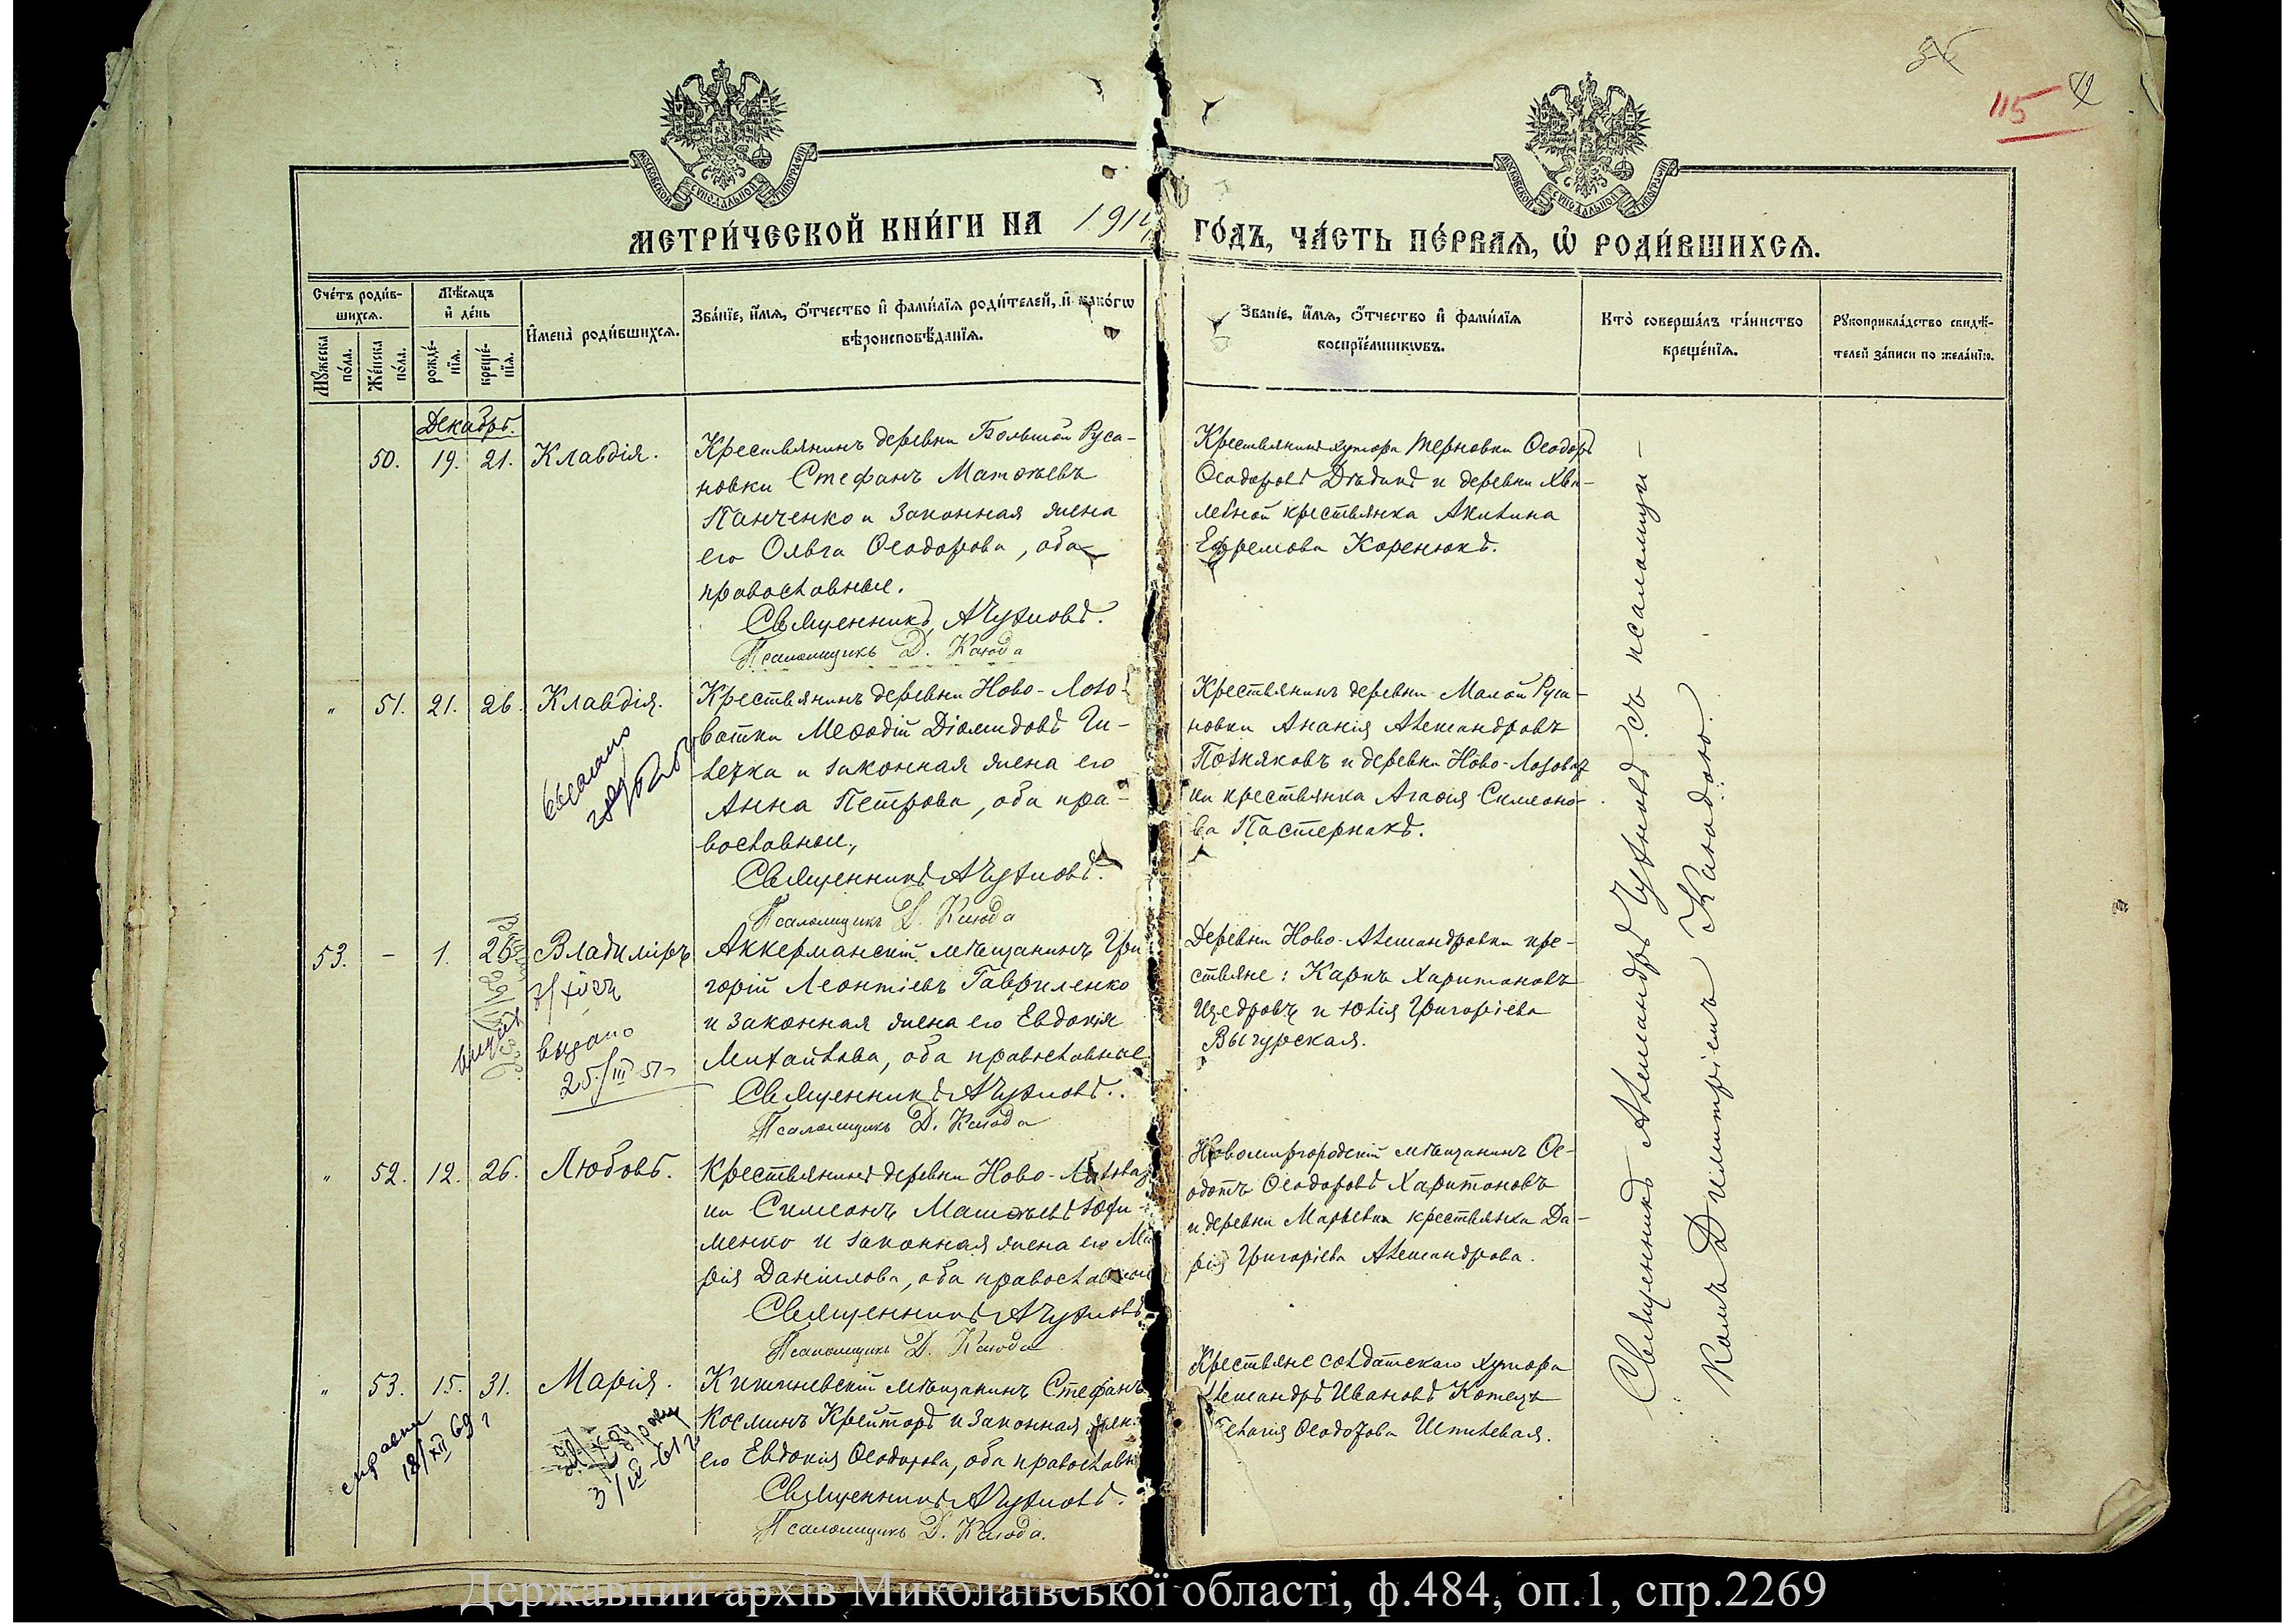 115
МЕТРИ́ЧЕСКОЙ КНИ́ГИ НА 1914
ГО́ДЪ, ЧА́СТЬ ПЕ́РВАЯ, Ѽ РОДИ́ВШИХСЯ.
Сче́тъ роди́в-
шихся.
Мѣ́сяцъ
и҆ де́нь
Мꙋ́жеска
по́ла.
Же́нска
по́ла.
рожде́-
нїя.
креще́-
нїя.
И҆мена̀ роди́вшихся.
Зва́нїе, и҆́мя, ѻ҆́тчество и҆ фами́лїя роди́телей, и҆ како́гѡ
вѣроисповѣ́данїя.
Зва́нїе, и҆́мя, ѻ҆́тчество и҆ фами́лїя
воспрїе́мникѡвъ.
Кто̀ соверша́лъ та́инство
креще́нїя.
Рꙋкоприкла́дство свидѣ́-
телей за́писи по жела́нїю.
Декабрь.
50. 19. 21. Клавдія.
Крестьянинъ деревни Большой Руса-
новки Стефанъ Матѳѣевъ
Панченко и законная жена
его Ольга Ѳеодорова, оба
православные.
Священникъ А Чужновъ.
Псаломщикъ Д. Каюда
Крестьянинъ хутора Терновки Ѳеодоръ
Ѳеодоровъ Дѣдикъ и деревни Хва-
лебной крестьянка Акилина
Ефремова Коренюкъ.
" 51. 21. 26. Клавдія.
Крестьянинъ деревни Ново-Лозо-
ватки Меѳодій Діомидовъ
и законная жена его
Анна Петрова, оба пра-
вославные,
Священникъ А Чужновъ.
Псаломщикъ Д. Каюда
Крестьянинъ деревни Малой Руса-
новки Ананія Александровъ
Позняковъ и деревни Ново-Лозоват
ки крестьянка Агаѳія Симеоно-
ва Пастернакъ.
53. - 1. 26 Владиміръ
выдано
25/III 51
Аккерманскій мѣщанинъ Гри
горій Леонтіевъ Гавриленко
и законная жена его Евдокія
Михайлова, оба православные
Священникъ А Чужновъ.
Псаломщикъ Д. Каюда
Деревни Ново-Александровки кре-
стьяне: Карпъ Харитоновъ
Щедровъ и Юлія Григоріева
Выгурская.
" 52. 12. 26. Любовь.
Крестьянинъ деревни Ново-
ки Симеонъ Матѳѣевъ Юфи-
менко и законная жена его Ма
рія Даніилова, оба православные
Священникъ А Чужновъ
Псаломщикъ Д. Каюда
Новомиргородскій мѣщанинъ Ѳе-
одотъ Ѳеодоровъ Харитоновъ
и деревни Марьевки крестьянка Да-
рія Григоріева Александрова.
" 53. 15. 31. Марія.
18/XII 69 г
3/IV-61 г
Кишиневскій мѣщанинъ Стефанъ
Косминъ и законная жен
его Евдокія Ѳеодорова, оба православн
Священникъ А Чужновъ.
Псаломщикъ Д. Каюда.
Крестьяне солдатскаго хутора
Александръ Ивановъ
Ѳеодорова
Священникъ Александръ Чужновъ съ псаломщи-
комъ Димитріемъ Каюдою.
Державний архів Миколаївської області, ф.484, оп.1, спр.2269